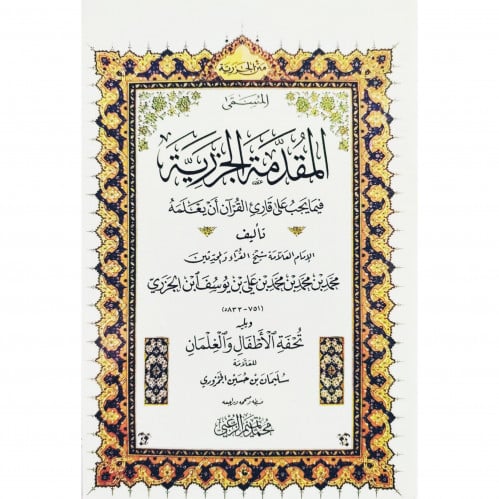 متن الجزرية
المسمى
المقدمة الجزرية
فيما يجب على قارئ القرآن أن يعلمه
تأليف
الإمام العلامة شيخ القراء والمجودين
محمد بن محمد بن محمد بن علي بن يوسف ابن الجزري
(٧٥١-٨٣٣هـ)
ويليه
تحفة الأطفال والغلمان
للعلامة
سليمان بن حسين الجمزوري
ضبطه وصححه وراجعه
محمد تميم الزعبي